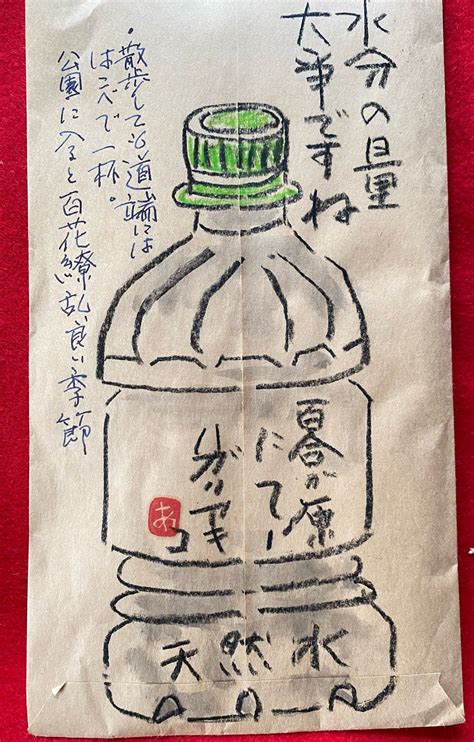 水分の量
大事ですね
・散歩しても道端には
はこべで一杯。
公園に入ると百花繚乱、良い季節
百合が原
にて
あ
天然水